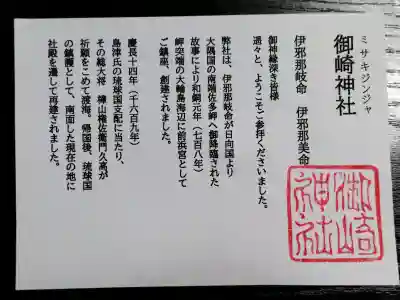 ミサキジンジャ
御崎神社
伊邪那岐命　伊邪那美命
御神縁深き皆様
遥々と、ようこそご参拝くださいました。
弊社は、伊邪那岐命が日向国より
大隅国の南端佐多岬へ御降臨された
故事により和銅元年（七百八年）
岬突端の大輪島海辺に前浜宮として
ご鎮座、創建されました。
慶長十四年（千六百九年）
島津氏の琉球国支配に当たり、
その総大将　樺山権左衛門久高が
祈願をこめて渡海。帰国後、琉球国
の鎮護として、南面した現在の地に
社殿を遷して再建されました。
御崎
神社